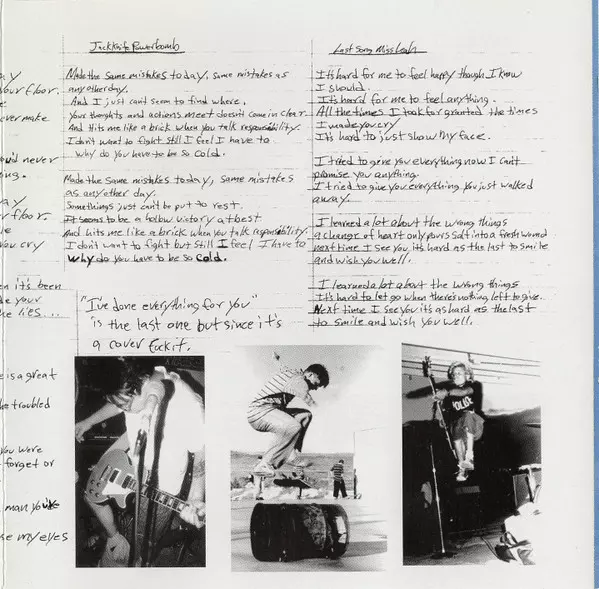 Jackknife Powerbomb
Made the same mistakes today, same mistakes as
any other day.
And I just can't seem to find where,
Your thoughts and actions meet doesn't come in clear
And Hits me like a brick when you talk responsibility.
I don't want to fight still I feel I have to
why do you have to be so cold.
Made the same mistakes today, same mistakes
as any other day.
Somethings just can't be put to rest.
It seems to be a hollow victory at best
And hits me like a brick when you talk responsibility.
I don't want to fight but still I feel I have to
why do you have to be so cold.
"I've done everything for you"
is the last one but since it's
a cover fuck it.
Last Song Miss Leah
It's hard for me to feel happy though I know
I should.
It's hard for me to feel anything.
All the times I took for granted the times
I made you cry
It's hard to just show my face.
I tried to give you everything now I can't
promise you anything.
I tried to give you everything you just walked
away.
I learned a lot about the wrong things
a change of heart only pours salt into a fresh wound
next time I see you its hard as the last to smile
and wish you well.
I learned a lot about the wrong things
It's hard to let go when there's nothing left to give.
Next time I see you it's as hard as the last
to smile and wish you well.
your floor.
ever make
never
floor.
you cry
it's been
your
lies...
is a great
troubled
you were
forget or
man you've
my eyes
POLICE